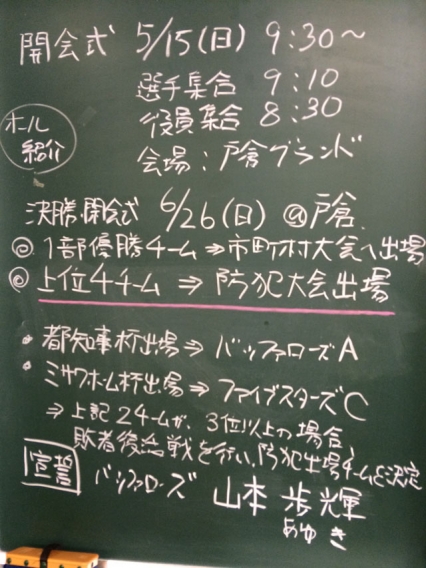 開会式 5/15(日) 9:30～
選手集合 9:10
役員集合 8:30
ホール
紹介
会場：戸倉グランド
決勝・閉会式 6/26(日) @戸倉
◎ 1部優勝チーム⇒市町村大会へ出場
◎ 上位4チーム ⇒ 防犯大会出場
・都知事杯出場⇒バッファローズA
・ミサワホーム杯出場⇒ファイブスターズC
⇒上記2チームが、3位以上の場合、
敗者復活戦を行い、防犯出場チームを決定
宣誓
バッファローズ 山本 歩輝
あゆき